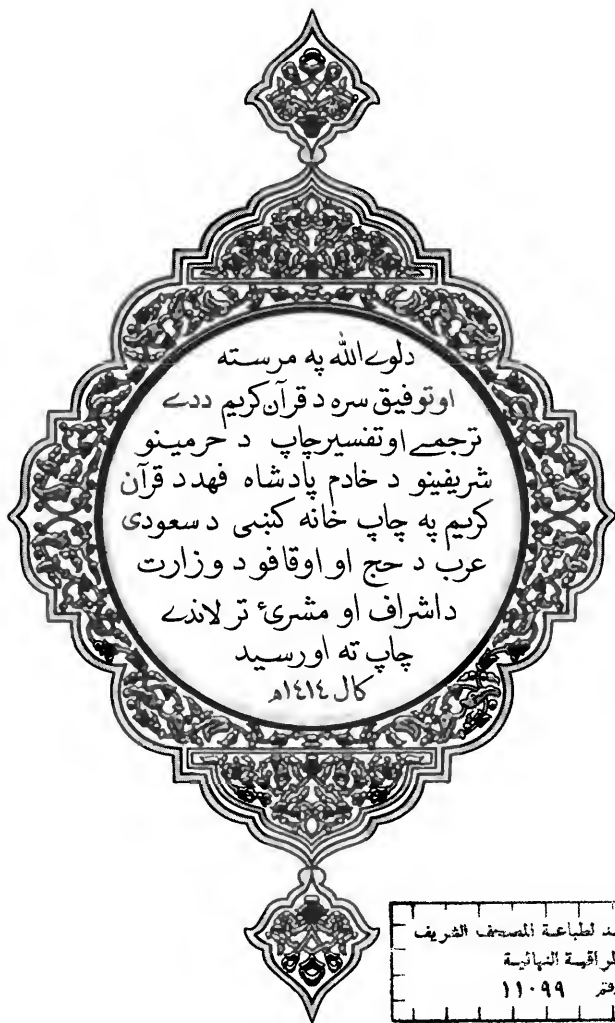 دلوے الله په مرسته
اوتوفیق سره د قرآن کریم ددے
ترجمے اوتفسیرچاپ د حرمینو
شریفینو د خادم پادشاه فهد د قرآن
کریم په چاپ خانه کښی د سعودی
عرب د حج او اوقافو د وزارت
داشراف او مشرئ تر لاندے
چاپ ته اورسید
کال ١٤١٤ﻫ
لطباعة المصحف الشريف
النهائية
١١٠٩٩